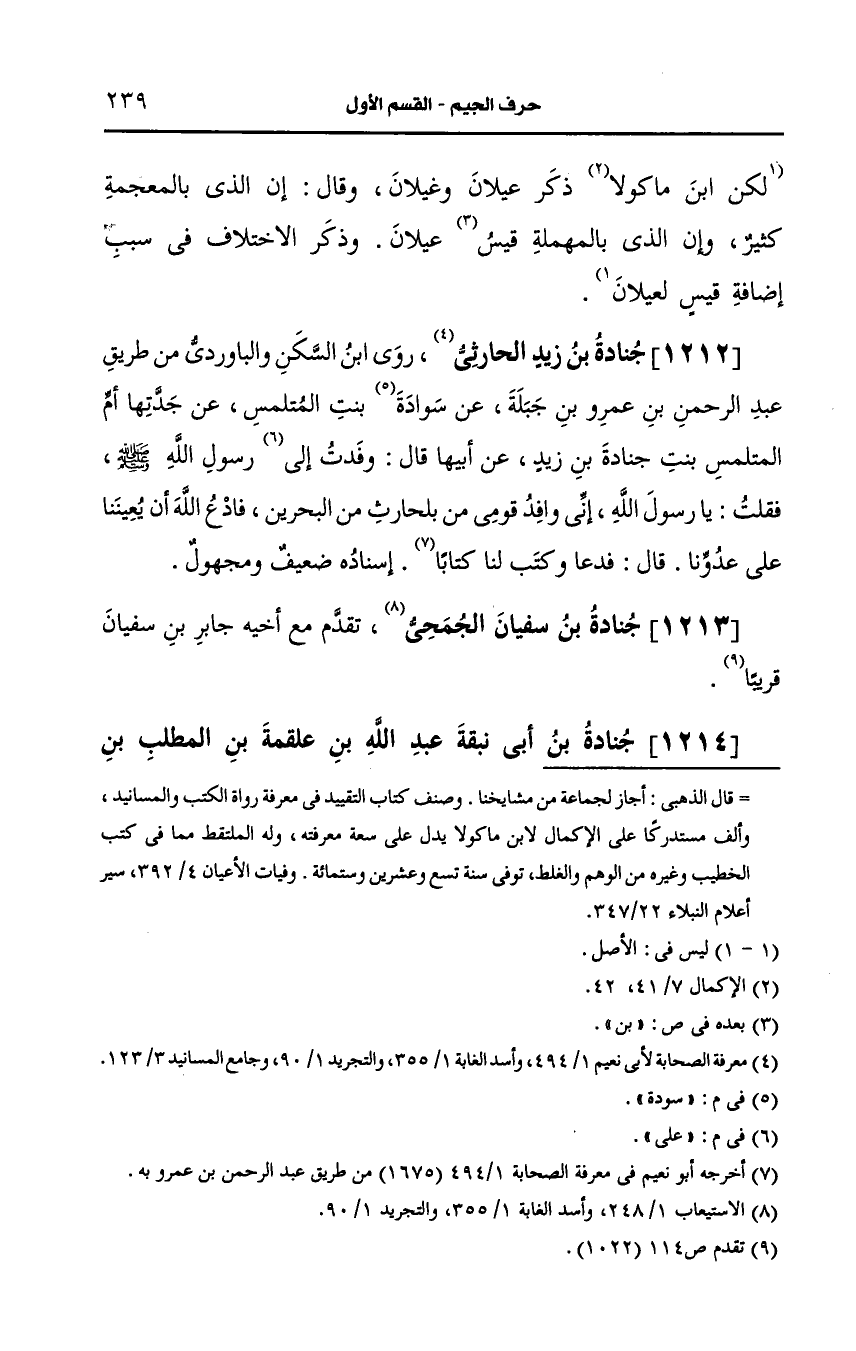 حرف الجيم - القسم الأول ٢٣٩
(١لكن ابنَ ماكولا(٢) ذكَر عيلانَ وغيلانَ ، وقال : إن الذى بالمعجمةِ
كثيرٌ ، وإن الذى بالمهملةِ قيسُ(٣) عيلانَ . وذكَر الاختلاف فى سببِ
إضافةِ قيسٍ لعيلانَ١) .
[١٢١٢] جُنادةُ بنُ زيدٍ الحارثِىُّ(٤) ، روَى ابنُ السَّكَنِ والباوردىُّ من طريقِ
عبدِ الرحمنِ بنِ عمرِو بنِ جَبَلَةَ ، عن سَوادَةَ(٥) بنتِ المُتلمسِ ، عن جَدَّتِها أمِّ
المتلمسِ بنتِ جنادةَ بنِ زيدٍ ، عن أبيها قال : وفَدتُ إلى(٦) رسولِ اللَّهِ ﷺ ،
فقلتُ : يا رسولَ اللَّهِ ، إنِّى وافِدُ قومِى من بلحارثِ من البحرين ، فادْعُ اللَّهَ أن يُعِينَنا
على عدُوِّنا . قال : فدعا وكتَب لنا كتابًا(٧) . إسنادُه ضعيفٌ ومجهولٌ .
[١٢١٣] جُنادةُ بنُ سفيانَ الجُمَحِىُّ(٨) ، تقدَّم مع أخيه جابرِ بنِ سفيانَ
قريبًا(٩) .
[١٢١٤] جُنادةُ بنُ أبى نبقةَ عبدِ اللَّهِ بنِ علقمةَ بنِ المطلبِ بنِ
= قال الذهبى : أجاز لجماعة من مشايخنا . وصنف كتاب التقييد فى معرفة رواة الكتب والمسانيد ،
وألف مستدركًا على الإكمال لابن ماكولا يدل على سعة معرفته ، وله الملتقط مما فى كتب
الخطيب وغيره من الوهم والغلط، توفى سنة تسع وعشرين وستمائة . وفيات الأعيان ٤/ ٣٩٢، سير
أعلام النبلاء ٢٢/ ٣٤٧.
(١ - ١) ليس فى : الأصل .
(٢) الإكمال ٧/ ٤١، ٤٢.
(٣) بعده فى ص : «بن» .
(٤) معرفة الصحابة لأبى نعيم ١/ ٤٩٤، وأسد الغابة ١/ ٣٥٥، والتجريد ١/ ٩٠، وجامع المسانيد ٣/ ١٢٣.
(٥) فى م : «سودة» .
(٦) فى م : «على» .
(٧) أخرجه أبو نعيم فى معرفة الصحابة ١/ ٤٩٤ (١٦٧٥) من طريق عبد الرحمن بن عمرو به .
(٨) الاستيعاب ١/ ٢٤٨، وأسد الغابة ١/ ٣٥٥، والتجريد ١/ ٩٠.
(٩) تقدم ص١١٤ (١٠٢٢) .